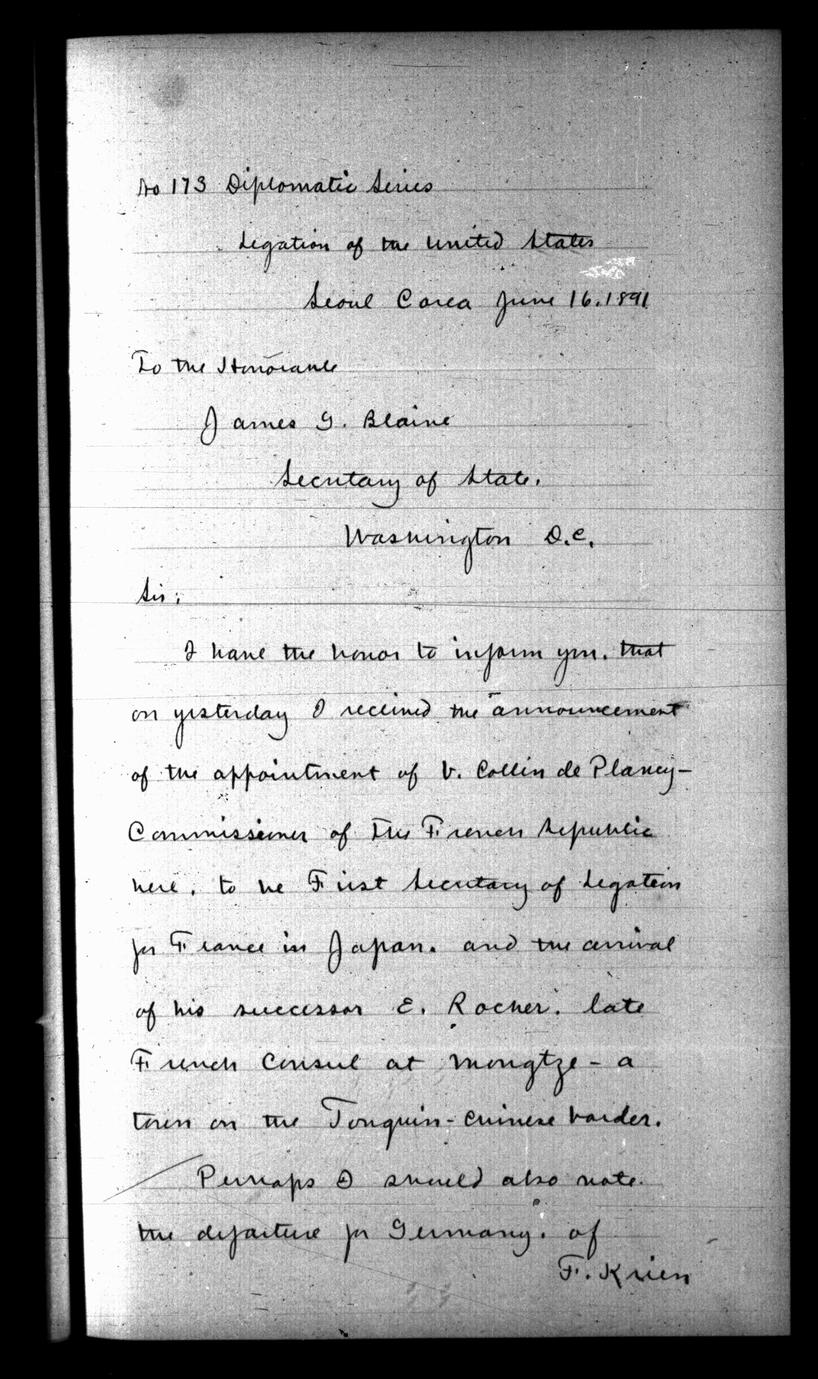 No 173 Diplomatic Series
Legation of the United States
Seoul Corea June 16. 1891
To the Honorable
James G. Blaine
Secretary of State.
Washington D.C.
Sir:
I have the honor to inform you. that
on yesterday I received the announcement
of the appointment of V. Collin de Plancy-
Commissioner of the French Republic
here. to be First Secretary of Legation
for France in Japan. and the arrival
of his successor E. Rocher. late
French Consul at Mongtze - a
town on the Tonquin-Chinese border.
Perhaps I should also note.
the departure for Germany. of
F. Krien